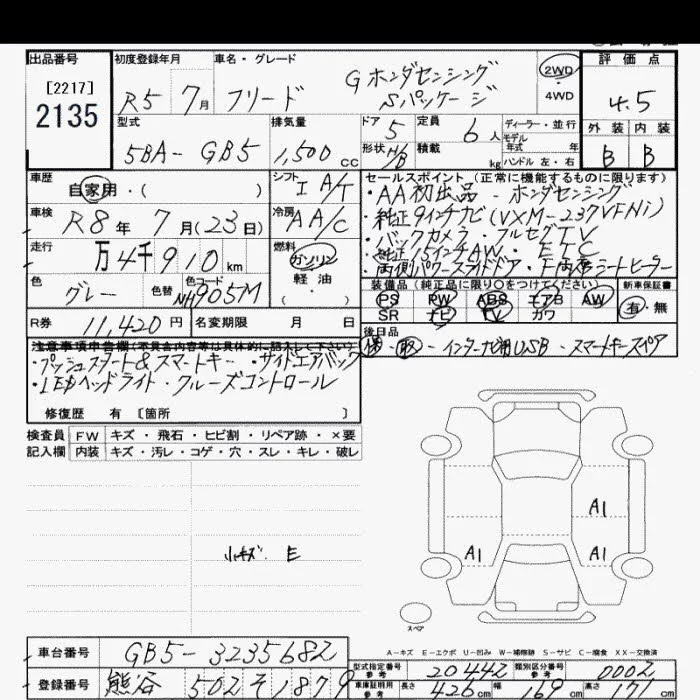 出品番号
[2217]
2135
初度登録年月
R5年 7月
車名・グレード
フリード
G ホンダセンシング
Sパッケージ
2WD
・
4WD
評価点
4.5
外装 内装
B B
型式
5BA-GB5
排気量
1,500 cc
ドア 5
形状 H/B
定員 6人
積載 kg
ディーラー・並行
モデル
年式 年
ハンドル 左・右
車歴
自家用・( )
シフト
I A/T
車検
R8年 7月(23日)
冷房
A A/C
走行
万4千910km
燃料
ガソリン
軽油
( )
色
グレー
色替
カラーコード
NH905M
R券
11,420円
名変期限 月 日
セールスポイント(正常に機能するものに限ります)
・AA初出品・ホンダセンシング
・純正9インチナビ(VXM-237VFNi)
・バックカメラ・フルセグTV
・純正15インチAW・ETC
・両側パワースライドドア・シートヒーター
装備品(純正品に限り○をつけてください)
PS PW ABS エアB AW
SR ナビ TV カワ
新車保証書
有・無
後日品
保・取・インターナビ用USB・スマートキースペア
注意事項申告欄(不具合内容等は具体的に記入して下さい)
・プッシュスタート&スマートキー・サイドエアバック
・LEDヘッドライト・クルーズコントロール
修復歴 有 [箇所 ]
検査員
記入欄
FW キズ・飛石・ヒビ割・リペア跡・×要
内装 キズ・汚レ・コゲ・穴・スレ・キレ・破レ
小キズ E
A1
A1
A1
スペア
A-キズ E-エクボ U-凹み W-補修跡 S-サビ C-腐食 XX-交換済
車台番号
GB5-3235682
登録番号
熊谷 502 そ 1879
型式指定番号
参考
20442
類別区分番号
参考
0002
車庫証明用
参考
長さ 426cm 幅 169cm 高さ 171cm